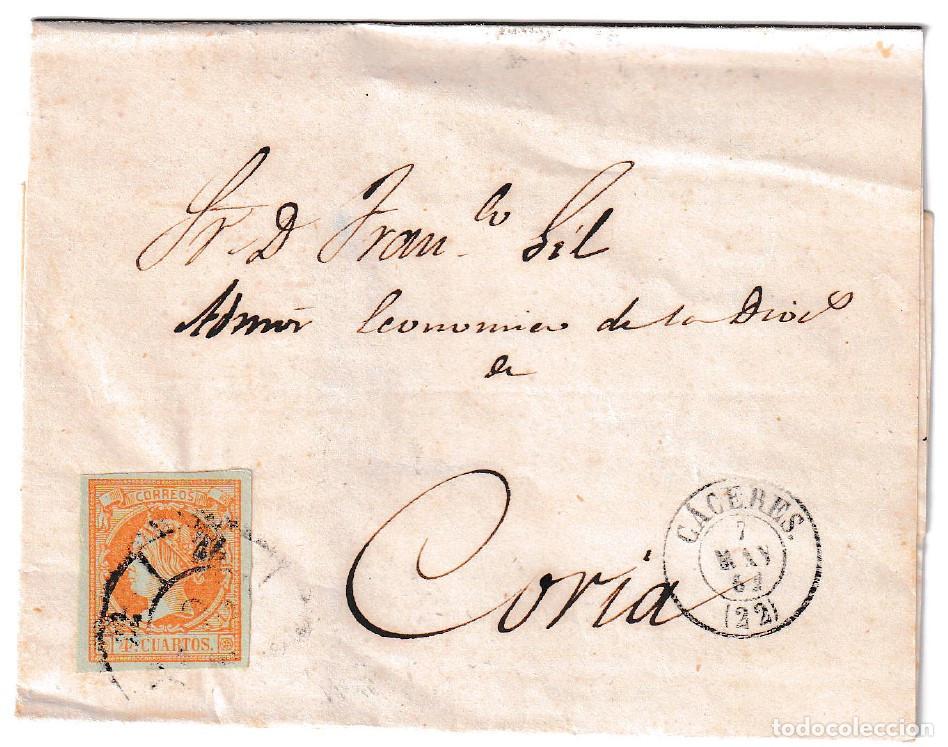 Sr. D. Fran.co Gil
Admor Economico de la Dioss
de
Coria
CORREOS
4 CUARTOS.
CÁCERES.
7
MAY
61
(22)
todocoleccion